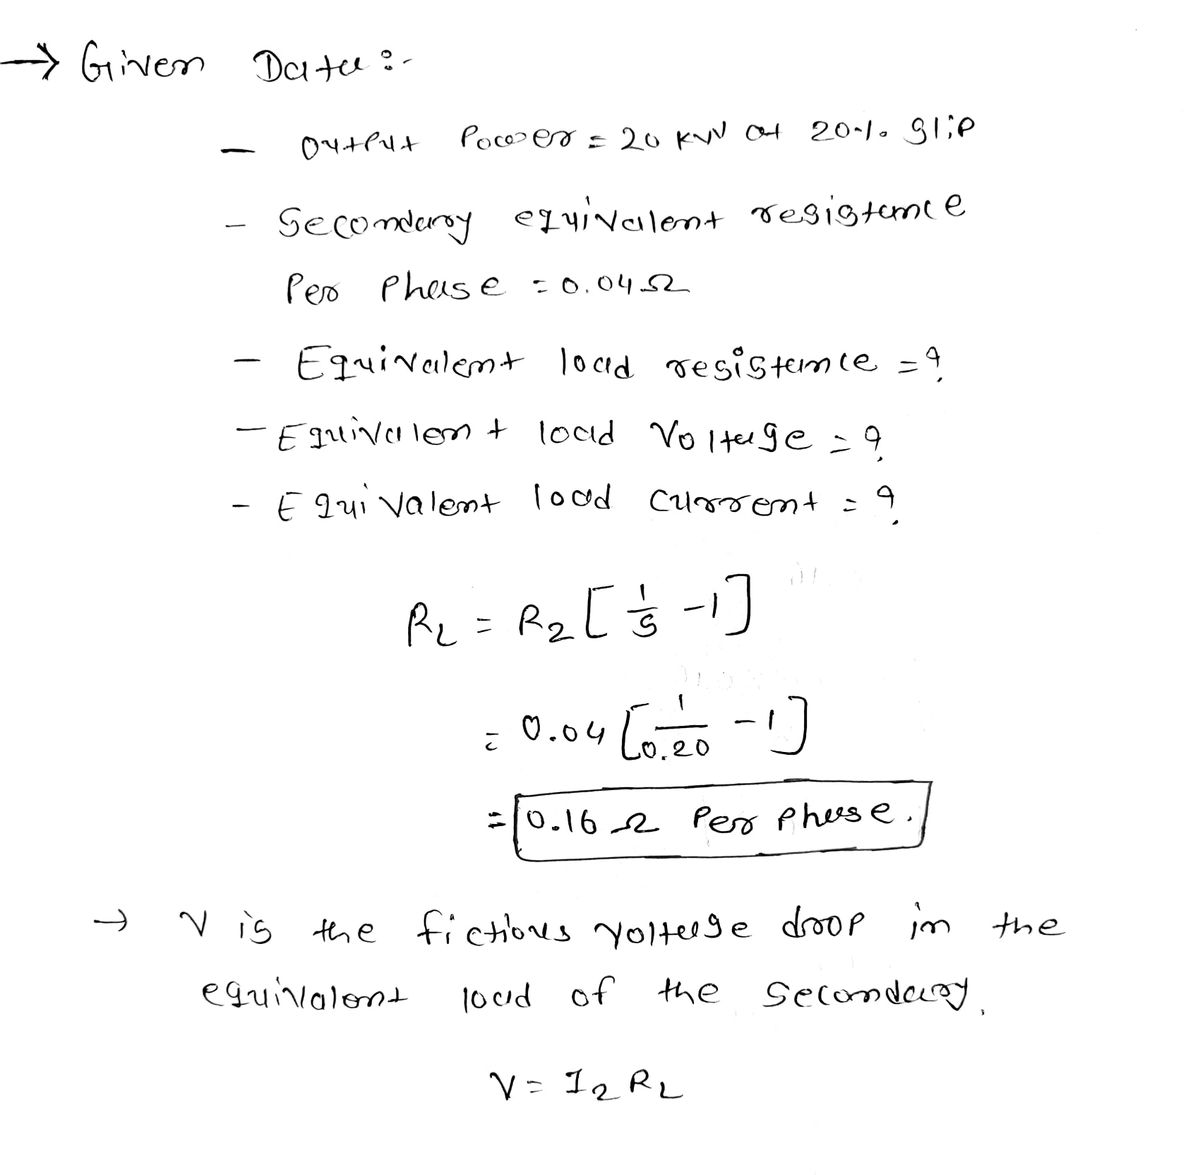 → Given Data :-
- Output Power = 20 kW at 20% slip
- Secondary equivalent resistance
Per Phase = 0.04 Ω
- Equivalent load resistance = ?
- Equivalent load Voltage = ?
- Equivalent load current = ?
R_L = R_2 [1/S - 1]
= 0.04 [1/0.20 - 1]
= 0.16 Ω Per phase.
→ V is the fictious voltage drop in the
equivalent load of the secondary.
V = I_2 R_L